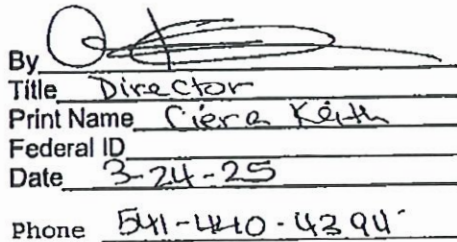 By
Title Director
Print Name Ciera Keith
Federal ID
Date 3-24-25
Phone 541-440-4394